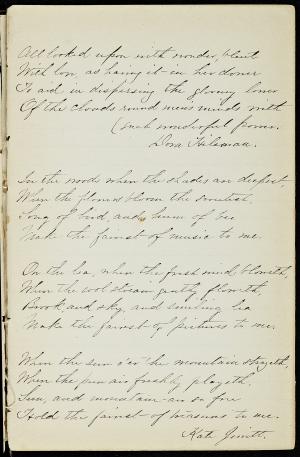 All looked upon with wonder, blent
With love, as having it in her
To aid in dispersing the gloomy
Of the clouds round men's minds with
(such wonderful power.
Dora
In the woods when the shades are deepest,
When the flowers bloom the sweetest,
Song of bird, and hum of bee
Make the fairest of music to me.
On the lea, when the fresh wind bloweth,
When the cool stream gently floweth,
Brook and sky, and smiling lea
Make the fairest of pictures to me.
When the sun o'er the mountain strayeth,
When the pure air freshly playeth,
Sun, and mountain-air so free
Hold the fairest of treasures to me.
Kate